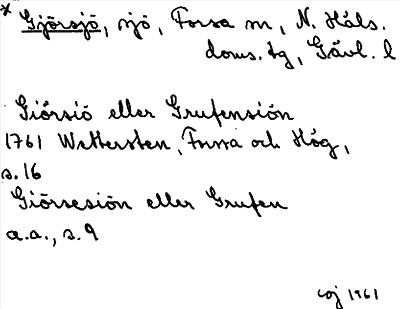 * Gjörsjö, sjö, Forsa sn, N. Häls.
doms. tg, Gävl. l
Giörsiö eller Grufensiön
1761 Wettersten, Forssa och Hög,
s. 16
Giörsesiön eller Grufen
a.a., s. 9
1961